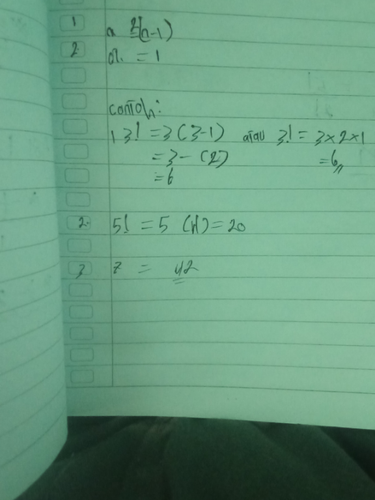 1 n 2(n-1)
2 0! = 1
contoh:
1 3! = 3 (3-1) atau 3! = 3 x 2 x 1
= 3 - (2) = 6
= 6
2. 5! = 5 (4) = 20
3 7 = 42